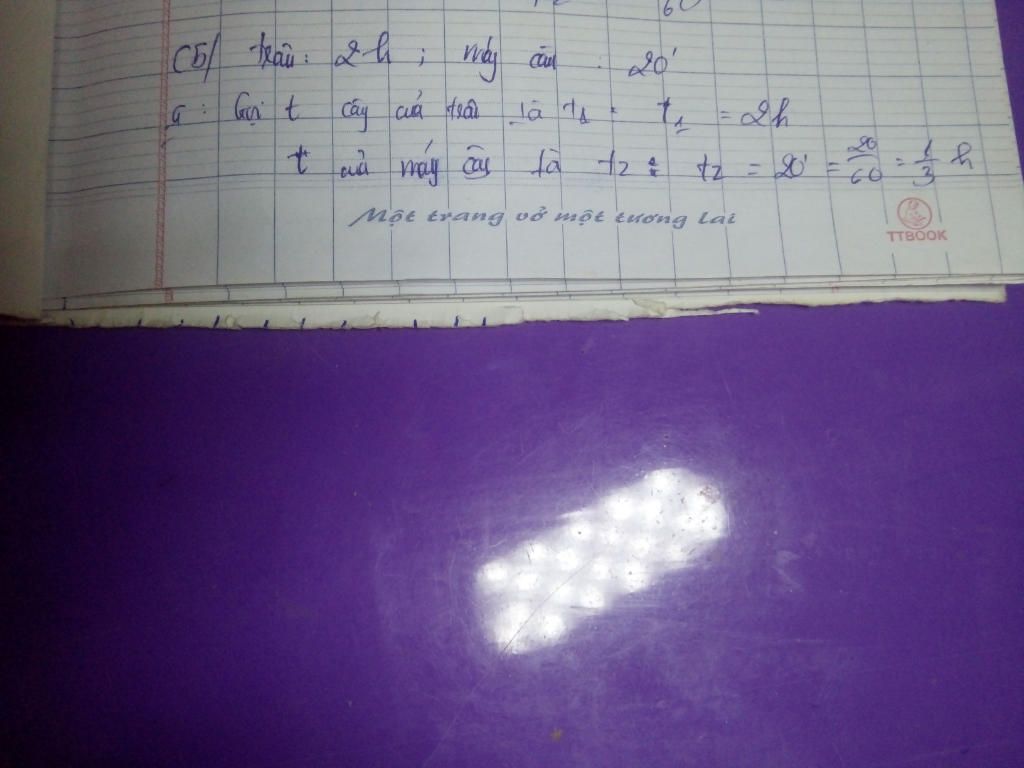 60
C5/ trâu: 2h ; máy cày : 20'
G : Gọi t cày của trâu là t1 : t1 = 2h
t của máy cày là t2 : t2 = 20' = 20/60 = 1/3 h
Một trang vở một tương lai
TTBOOK